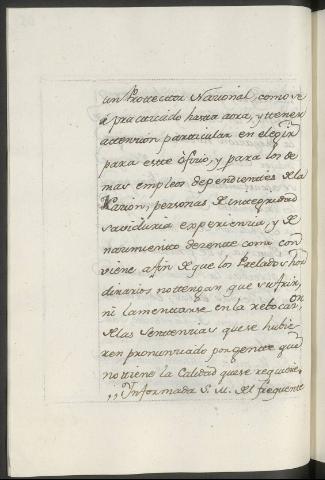 un Protector Nacional, como se
à practicado hasta aora, y tener
attencion particular en elegir
para este Oficio, y para los de
mas empleos dependientes de la
Nacion, personas de integridad
saviduria experiencia, y de
nacimiento decente como con
viene afin de que los Prelados Hor
dinarios no tengan que sufrir,
ni lamentarse en la rebocan.on
de las Sentencias que se hubie
ren pronunciado por gente que
no tiene la Calidad que se requiere.
,, Informada S. M. del frequente